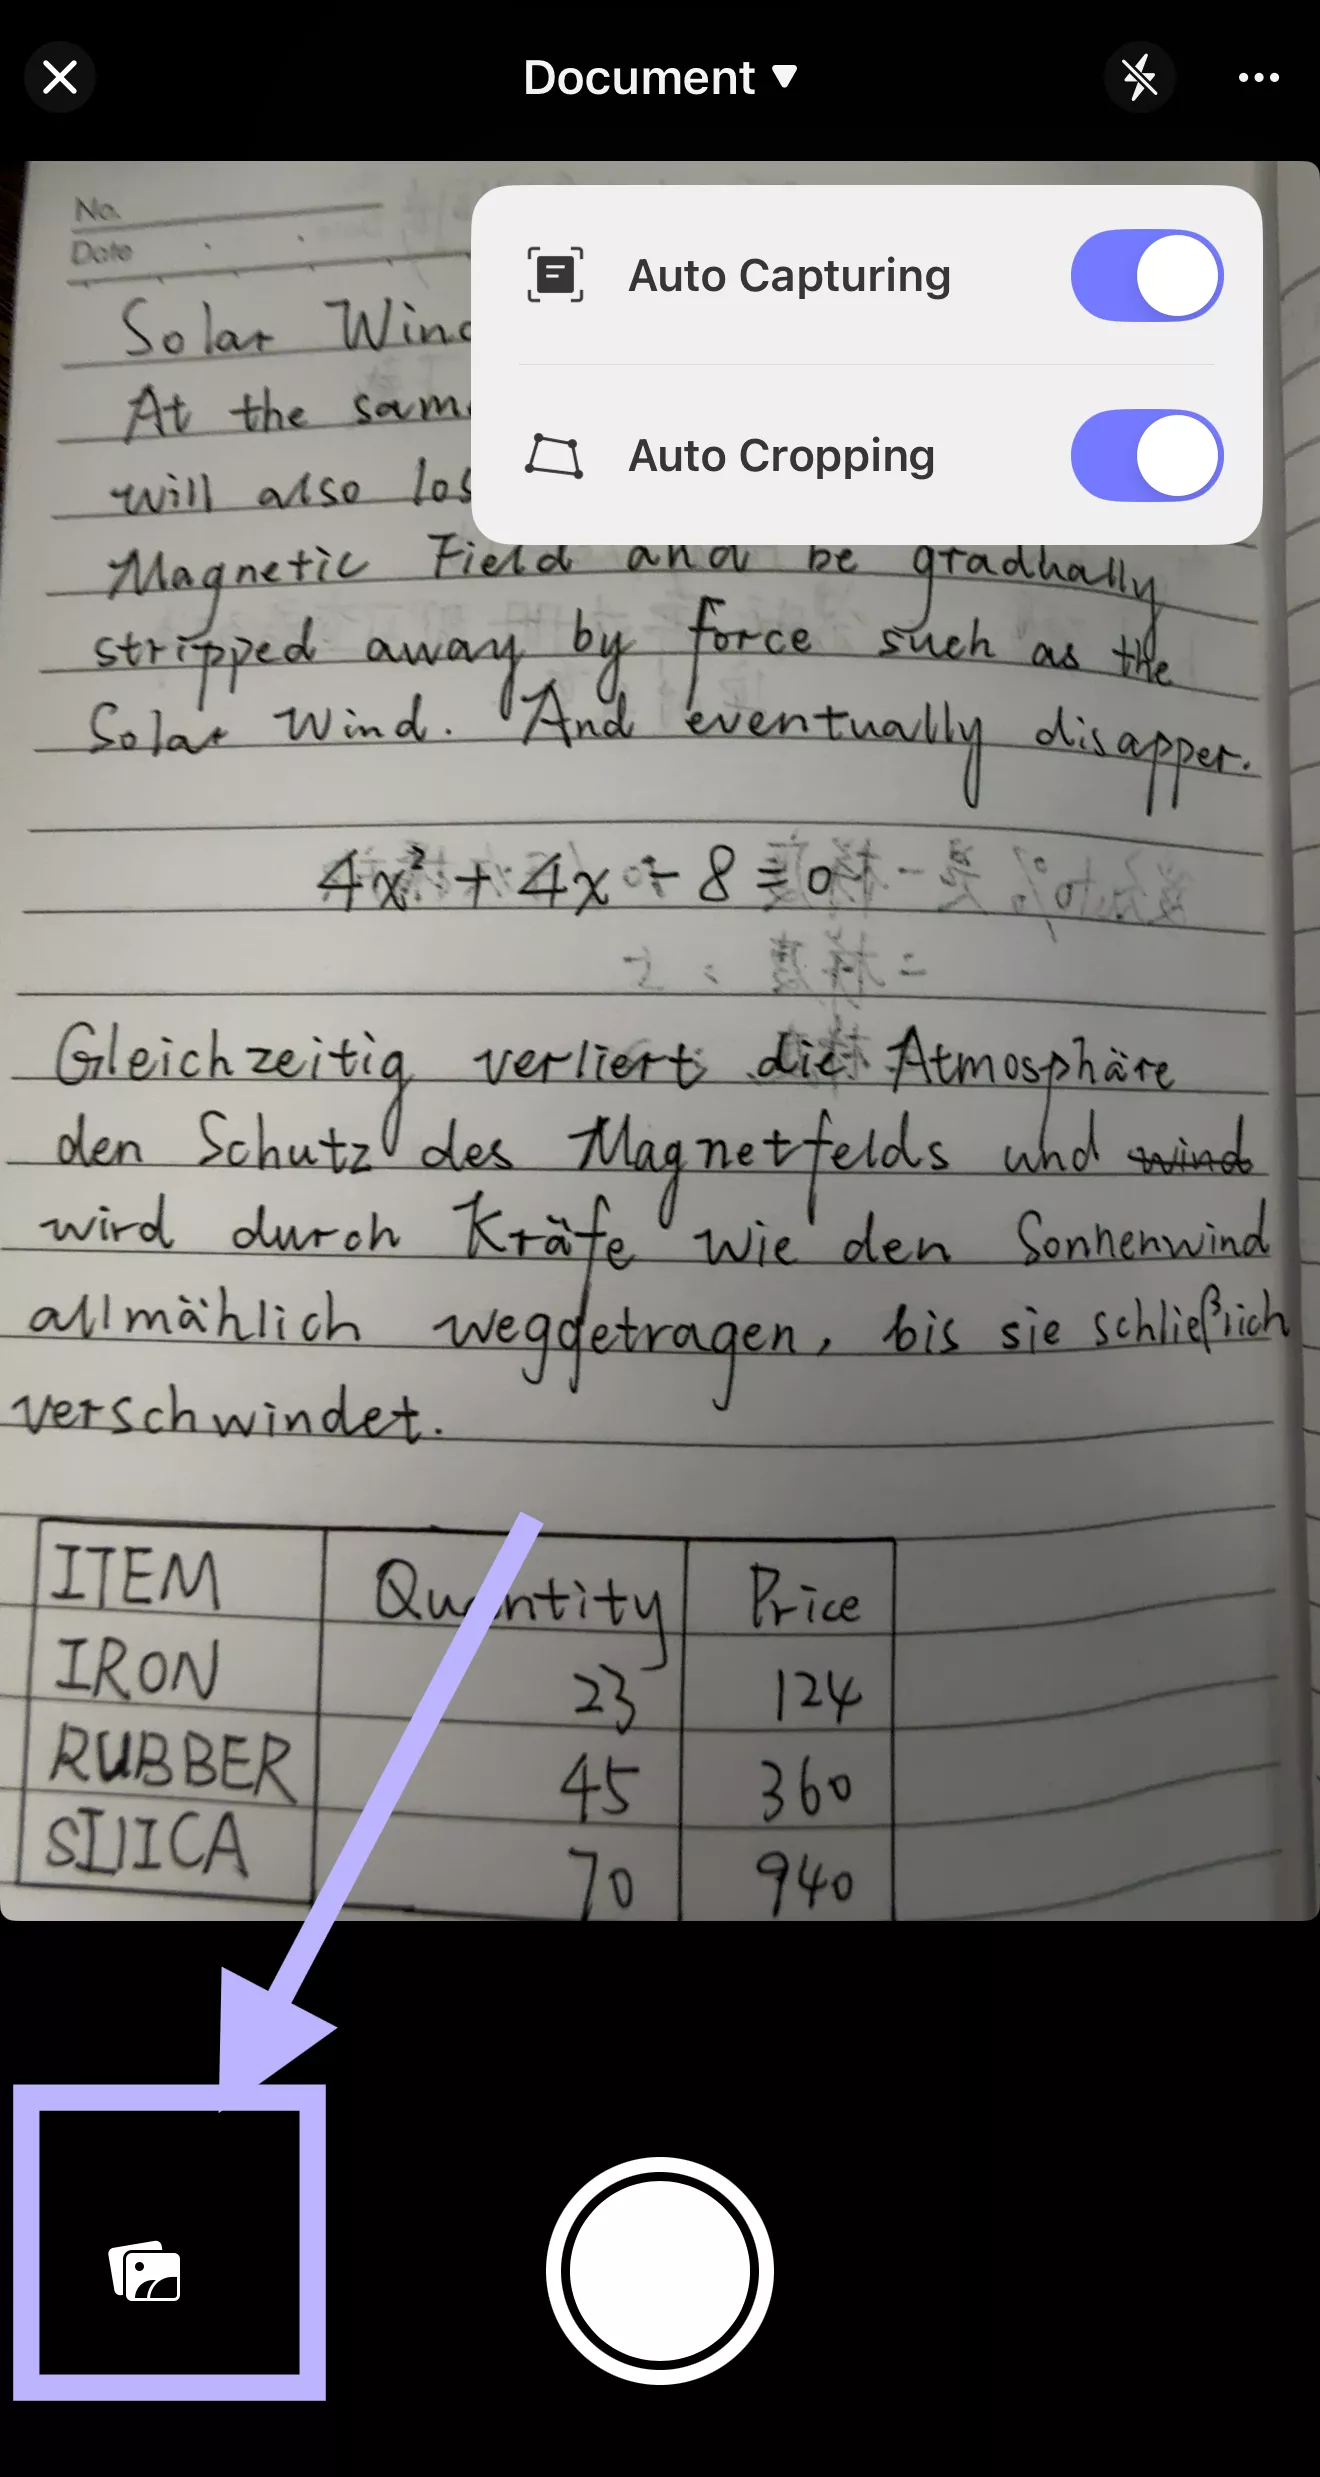 Document
Auto Capturing
Auto Cropping
No.
Date
Solar Wind
At the sam
will also los
Magnetic Field and be gradually
stripped away by force such as the
Solar Wind. And eventually disapper.
4x² + 4x - 8 = 0
Gleichzeitig verliert die Atmosphäre
den Schutz des Magnetfelds und wind
wird durch Kräfe wie den Sonnenwind
allmählich weggetragen, bis sie schließlich
verschwindet.
ITEM Quantity Price
IRON 23 124
RUBBER 45 360
SILICA 70 940